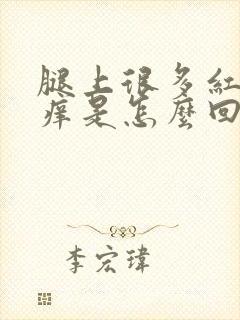 腿上很多紅
痒是怎麼回
李宏瑋